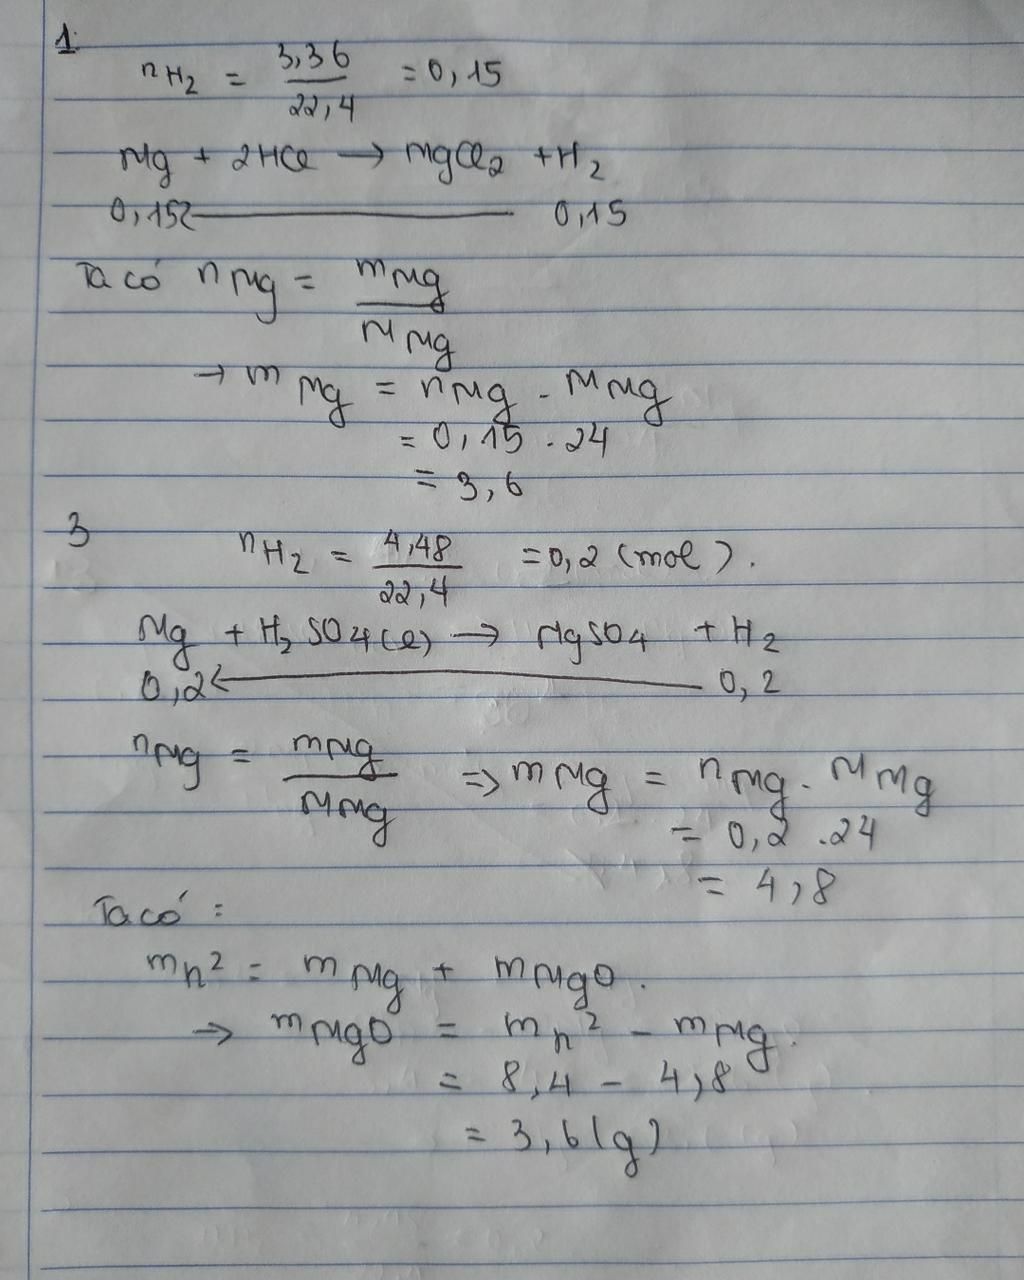 1.
nH2 = 3,36 / 22,4 = 0,15
Mg + 2HCl → MgCl2 + H2
0,15 ← 0,15
Ta có nMg = mMg / MMg
→ mMg = nMg . MMg
= 0,15 . 24
= 3,6
3
nH2 = 4,48 / 22,4 = 0,2 (mol).
Mg + H2SO4(l) → MgSO4 + H2
0,2 ← 0,2
nMg = mMg / MMg ⇒ mMg = nMg . MMg
= 0,2 . 24
= 4,8
Ta có :
mh² = mMg + mMgO.
⇒ mMgO = mh² - mMg.
= 8,4 - 4,8
= 3,6 (g)